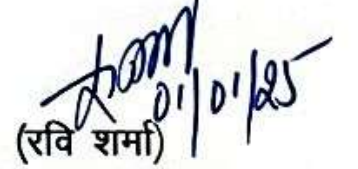 01/01/25
(रवि शर्मा)